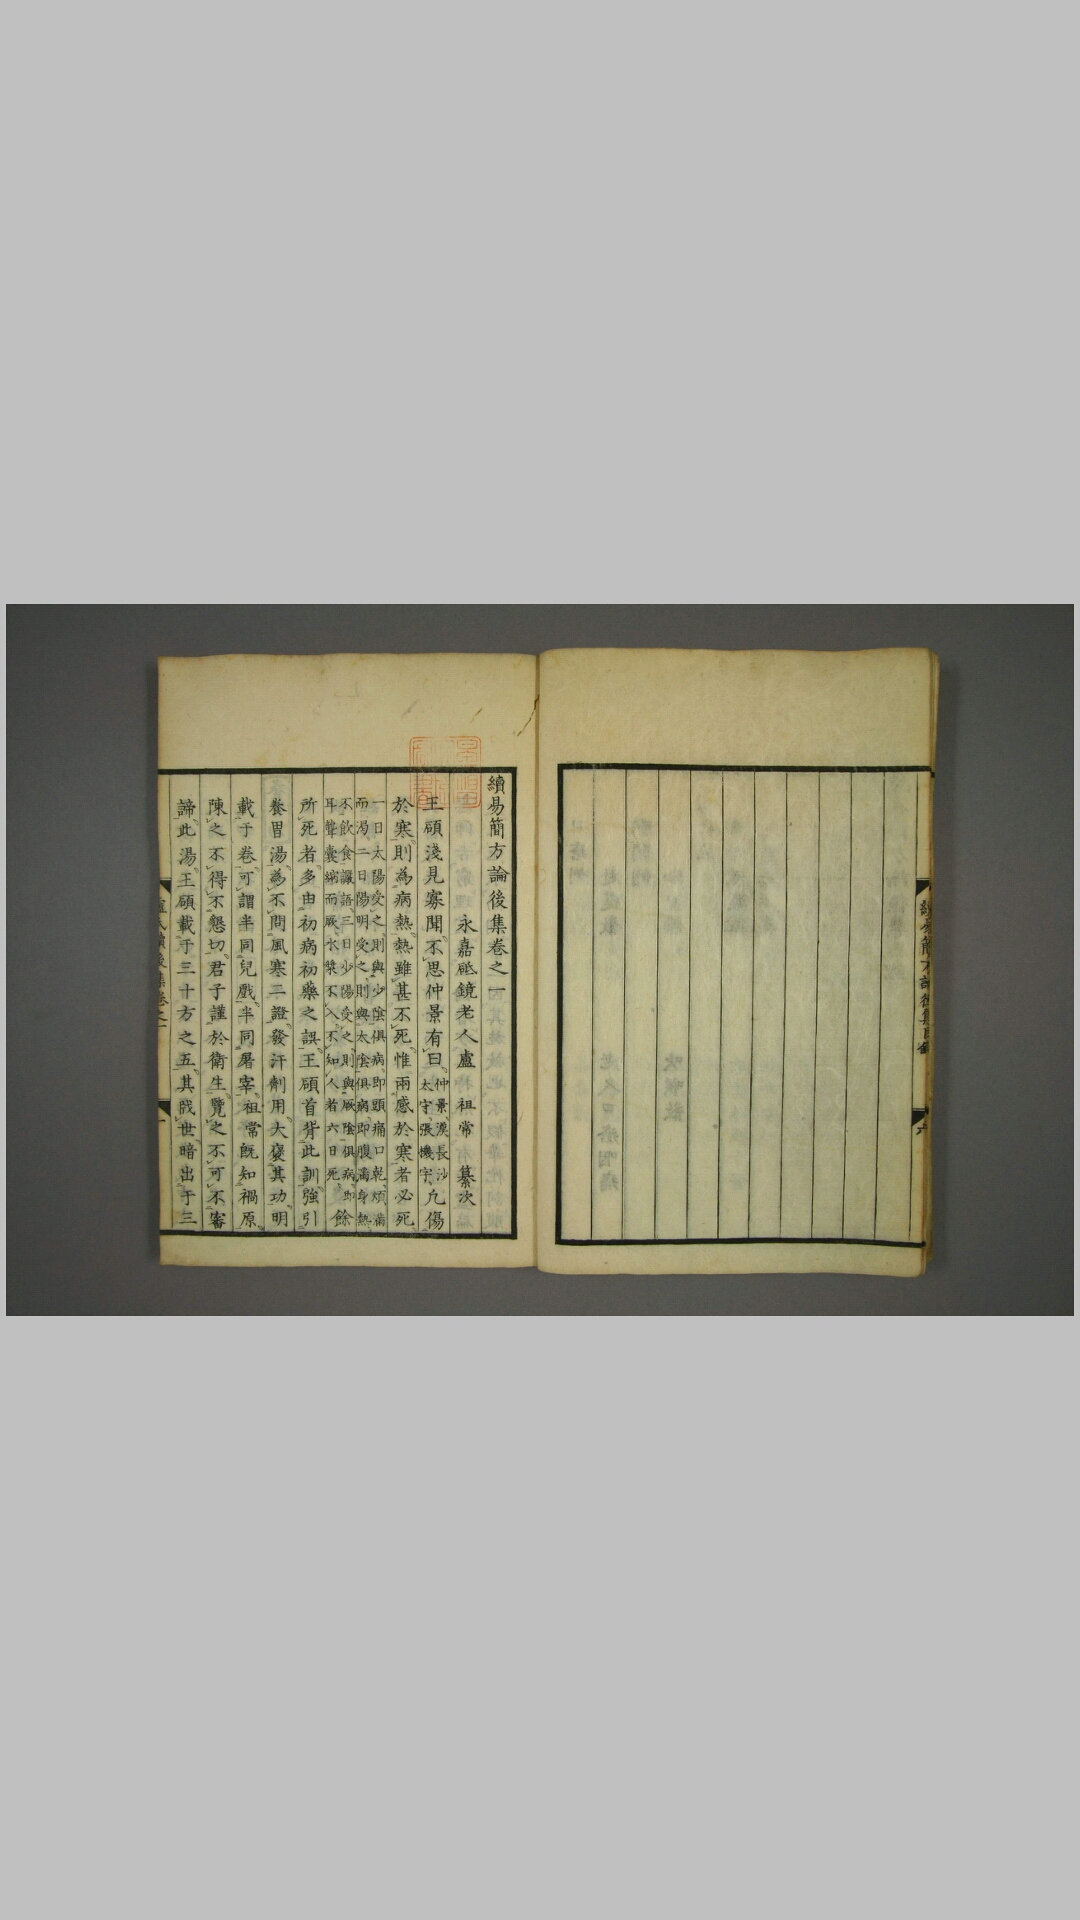 續易簡方論後集卷之一
永嘉砥鏡老人盧 祖常 纂次
王碩淺見寡聞不思仲景有曰仲景漢長沙太守張機字凢傷
於寒則為病熱熱雖甚不死惟兩感於寒者必死
一日太陽受之則與少陰俱病即頭痛口乾煩滿
而渴二日陽明受之則與太陰俱病即腹滿身熱
不飲食譫語三日少陽受之則與厥陰俱病即
耳聾囊縮而厥水漿不入不知人者六日死餘
所死者多由初病初藥之誤王碩首背此訓強引
養胃湯為不問風寒二證發汗劑用大褒其功明
載于卷可謂半同兒戲半同屠宰祖常既知禍原
陳之不得不懇切君子謹於衛生覽之不可不審
諦此湯王碩載于三十方之五其戕世暗出于三
續易簡方論後集目錄
六
盧氏續後集卷之一
一